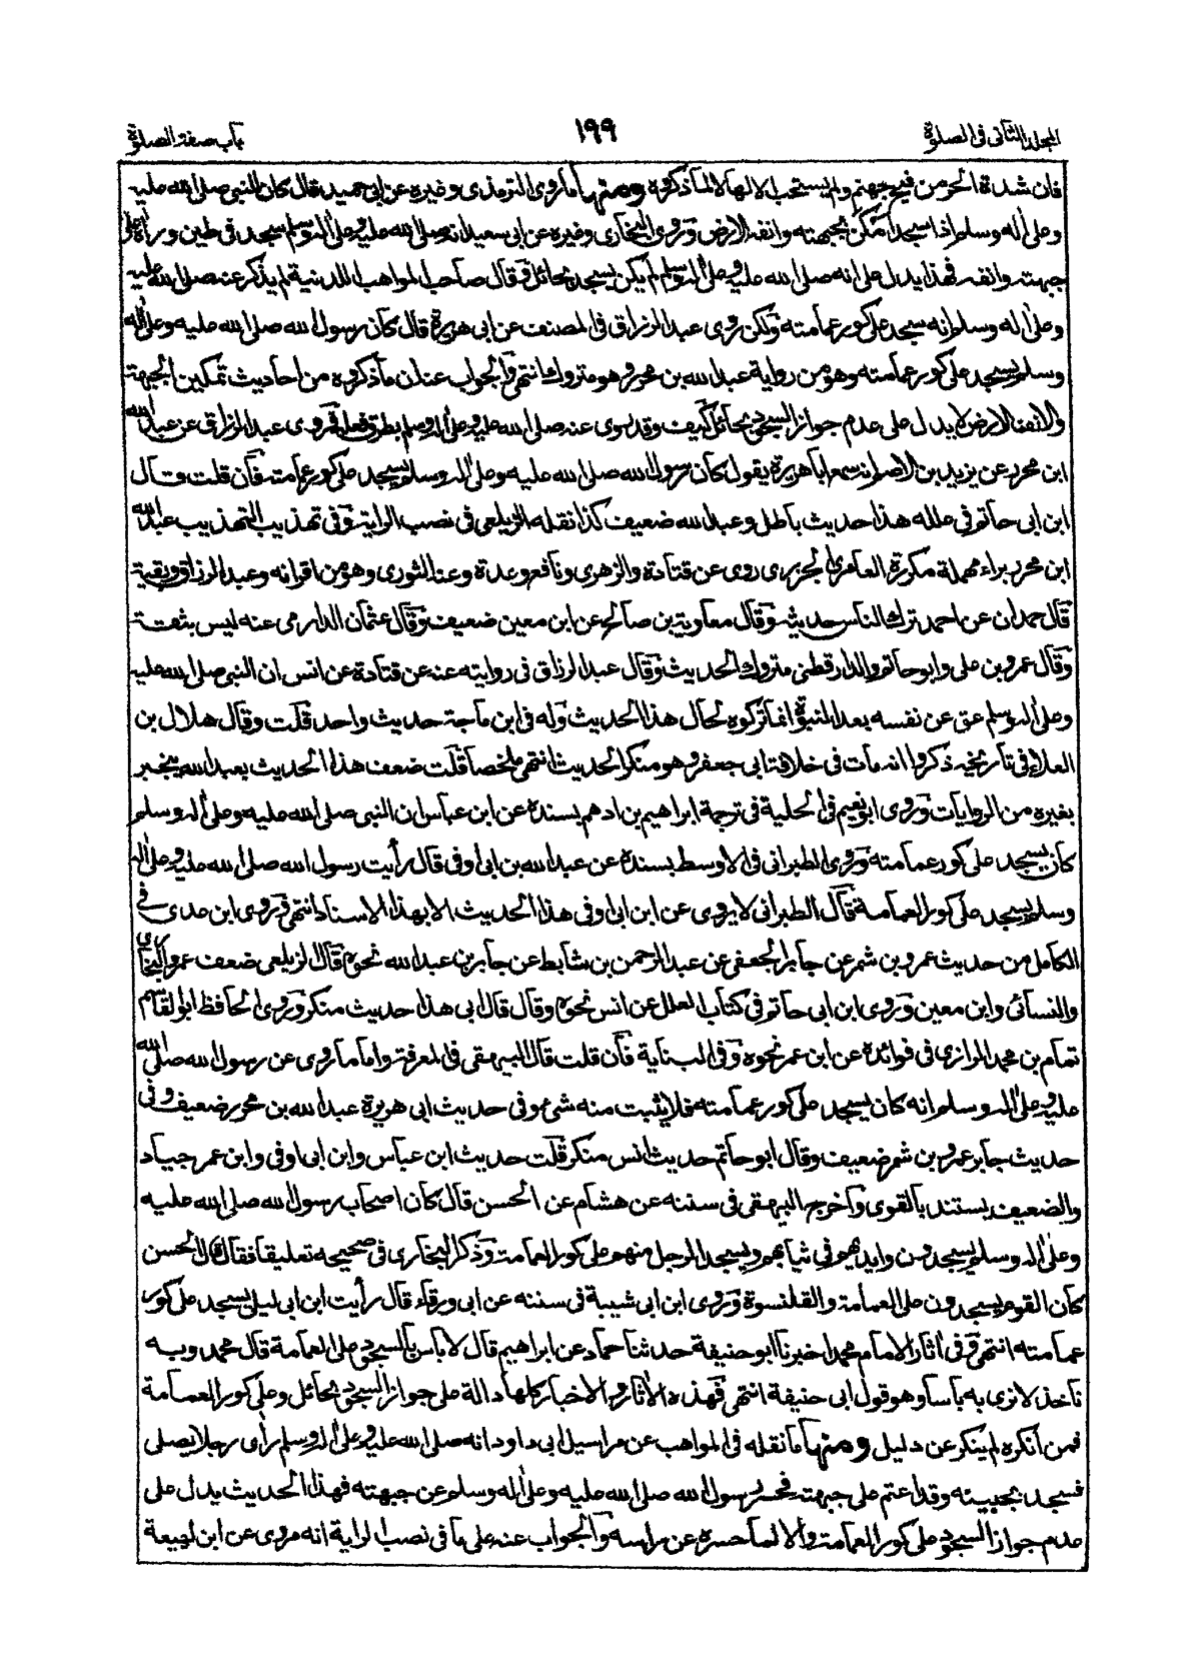 المجلد الثانى فى الصلوة
١٩٩
باب صفة الصلوة
فان شدة الحر من فيح جهنم ولم يستحب الا لها لا لما ذكروه ومنها ما روى الترمذى وغيره عن ابى حميد قال كان النبى صلى الله عليه
وعلى اله وسلم اذا سجد امكن جبهته وانفه الارض وروى البخارى وغيره عن ابى سعيد انه صلى الله عليه وعلى اله وسلم سجد فى طين وراه على
جبهته وانفه فهذا يدل على انه صلى الله عليه وعلى اله وسلم لم يكن يسجد بحائل وقال صاحب المواهب اللدنية لم يذكر عنه صلى الله عليه
وعلى اله وسلم انه سجد على كور عمامته ولكن روى عبد الرزاق فى المصنف عن ابى هريرة قال كان رسول الله صلى الله عليه وعلى اله
وسلم يسجد على كور عمامته وهو من رواية عبد الله بن محرر وهو متروك انتهى والجواب عنه ان ما ذكروه من احاديث تمكين الجبهة
والانف الارض لا يدل على عدم جواز السجود بحائل كيف وقد روى عنه صلى الله عليه وعلى اله وسلم بطرق فعله فروى عبد الرزاق عن عبد الله
ابن محرر عن يزيد بن الاصم انه سمع ابا هريرة يقول كان رسول الله صلى الله عليه وعلى اله وسلم يسجد على كور عمامته فان قلت قال
ابن ابى حاتم فى علله هذا حديث باطل وعبد الله ضعيف كذا نقله الزيلعى فى نصب الراية وفى تهذيب التهذيب عبد الله
ابن محرر براء مهملة مكررة العامرى الجزرى روى عن قتادة والزهرى ونافع وعدة وعنه الثورى وهو من اقرانه وعبد الرزاق وبقية
قال حمدان عن احمد ترك الناس حديثه وقال معاوية بن صالح عن ابن معين ضعيف وقال عثمان الدارمى عنه ليس بثقة
وقال عمرو بن على وابو حاتم والدارقطنى متروك الحديث وقال عبد الرزاق فى روايته عنه عن قتادة عن انس ان النبى صلى الله عليه
وعلى اله وسلم عق عن نفسه بعد النبوة انما تركوه لحال هذا الحديث وله فى ابن ماجة حديث واحد قلت وقال هلال بن
العلاء فى تاريخه ذكروا انه مات فى خلافة ابى جعفر وهو منكر الحديث انتهى ملخصا قلت ضعف هذا الحديث بعبد الله ينجبر
بغيره من الروايات وروى ابو نعيم فى الحلية فى ترجمة ابراهيم بن ادهم بسنده عن ابن عباس ان النبى صلى الله عليه وعلى اله وسلم
كان يسجد على كور عمامته وروى الطبرانى فى الاوسط بسنده عن عبد الله بن ابى اوفى قال رأيت رسول الله صلى الله عليه وعلى اله
وسلم يسجد على كور العمامة قال الطبرانى لا يروى عن ابن ابى اوفى هذا الحديث الا بهذا الاسناد انتهى وروى ابن عدى فى
الكامل من حديث عمرو بن شمر عن جابر الجعفى عن عبد الرحمن بن سابط عن جابر بن عبد الله نحوه قال الزيلعى ضعف عمرو البخارى
والنسائى وابن معين وروى ابن ابى حاتم فى كتاب العلل عن انس نحوه وقال قال ابى هذا حديث منكر وروى الحافظ ابو القاسم
تمام بن محمد الرازى فى فوائده عن ابن عمر نحوه وفى البناية فان قلت قال البيهقى فى المعرفة واما ما روى عن رسول الله صلى الله
عليه وعلى اله وسلم انه كان يسجد على كور عمامته فلا يثبت منه شىء وفى حديث ابى هريرة عبد الله بن محرر ضعيف وفى
حديث جابر عمرو بن شمر ضعيف وقال ابو حاتم حديث انس منكر قلت حديث ابن عباس وابن ابى اوفى وابن عمر جياد
والضعيف يستند بالقوى واخرج البيهقى فى سننه عن هشام عن الحسن قال كان اصحاب رسول الله صلى الله عليه
وعلى اله وسلم يسجدون وايديهم فى ثيابهم ويسجد الرجل منهم على كور العمامة وذكر البخارى فى صحيحه تعليقا فقال قال الحسن
كان القوم يسجدون على العمامة والقلنسوة وروى ابن ابى شيبة فى سننه عن ابى ورقاء قال رأيت ابن ابى ليلى يسجد على كور
عمامته انتهى وفى اثار الامام محمد اخبرنا ابو حنيفة حدثنا حماد عن ابراهيم قال لا باس بالسجود على العمامة قال محمد وبه
ناخذ لا نرى به باسا وهو قول ابى حنيفة انتهى فهذه الأثار والاخبار كلها دالة على جواز السجود بحائل وعلى كور العمامة
فمن انكره لم ينكر عن دليل ومنها ما نقله فى المواهب عن مراسيل ابى داود انه صلى الله عليه وعلى اله وسلم رأى رجلا يصلى
فسجد بجبينه وقد اعتم على جبهته فحسر رسول الله صلى الله عليه وعلى اله وسلم عن جبهته فهذا الحديث يدل على
عدم جواز السجود على كور العمامة والا لما حسره عن راسه والجواب عنه على ما فى نصب الراية انه مروى عن ابن لهيعة